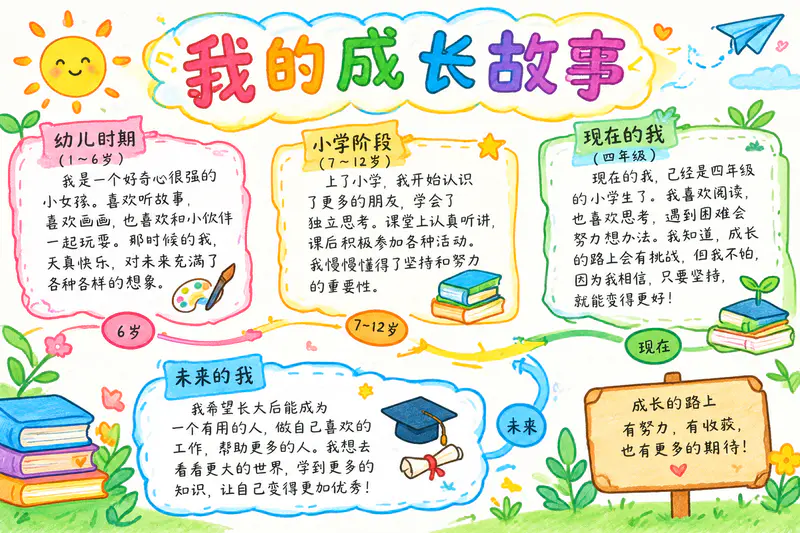 我的成长故事
幼儿时期
(1~6岁)
我是一个好奇心很强的
小女孩。喜欢听故事,
喜欢画画,也喜欢和小伙伴
一起玩耍。那时候的我,
天真快乐,对未来充满了
各种各样的想象。
小学阶段
(7~12岁)
上了小学,我开始认识
了更多的朋友,学会了
独立思考。课堂上认真听讲,
课后积极参加各种活动。
我慢慢懂得了坚持和努力
的重要性。
现在的我
(四年级)
现在的我,已经是四年级
的小学生了。我喜欢阅读,
也喜欢思考,遇到困难会
努力想办法。我知道,成长
的路上会有挑战,但我不怕,
因为我相信,只要坚持,
就能变得更好!
6岁
7~12岁
现在
未来的我
我希望长大后能成为
一个有用的人,做自己喜欢的
工作,帮助更多的人。我想去
看看更大的世界,学到更多的
知识,让自己变得更加优秀!
未来
成长的路上
有努力,有收获,
也有更多的期待!